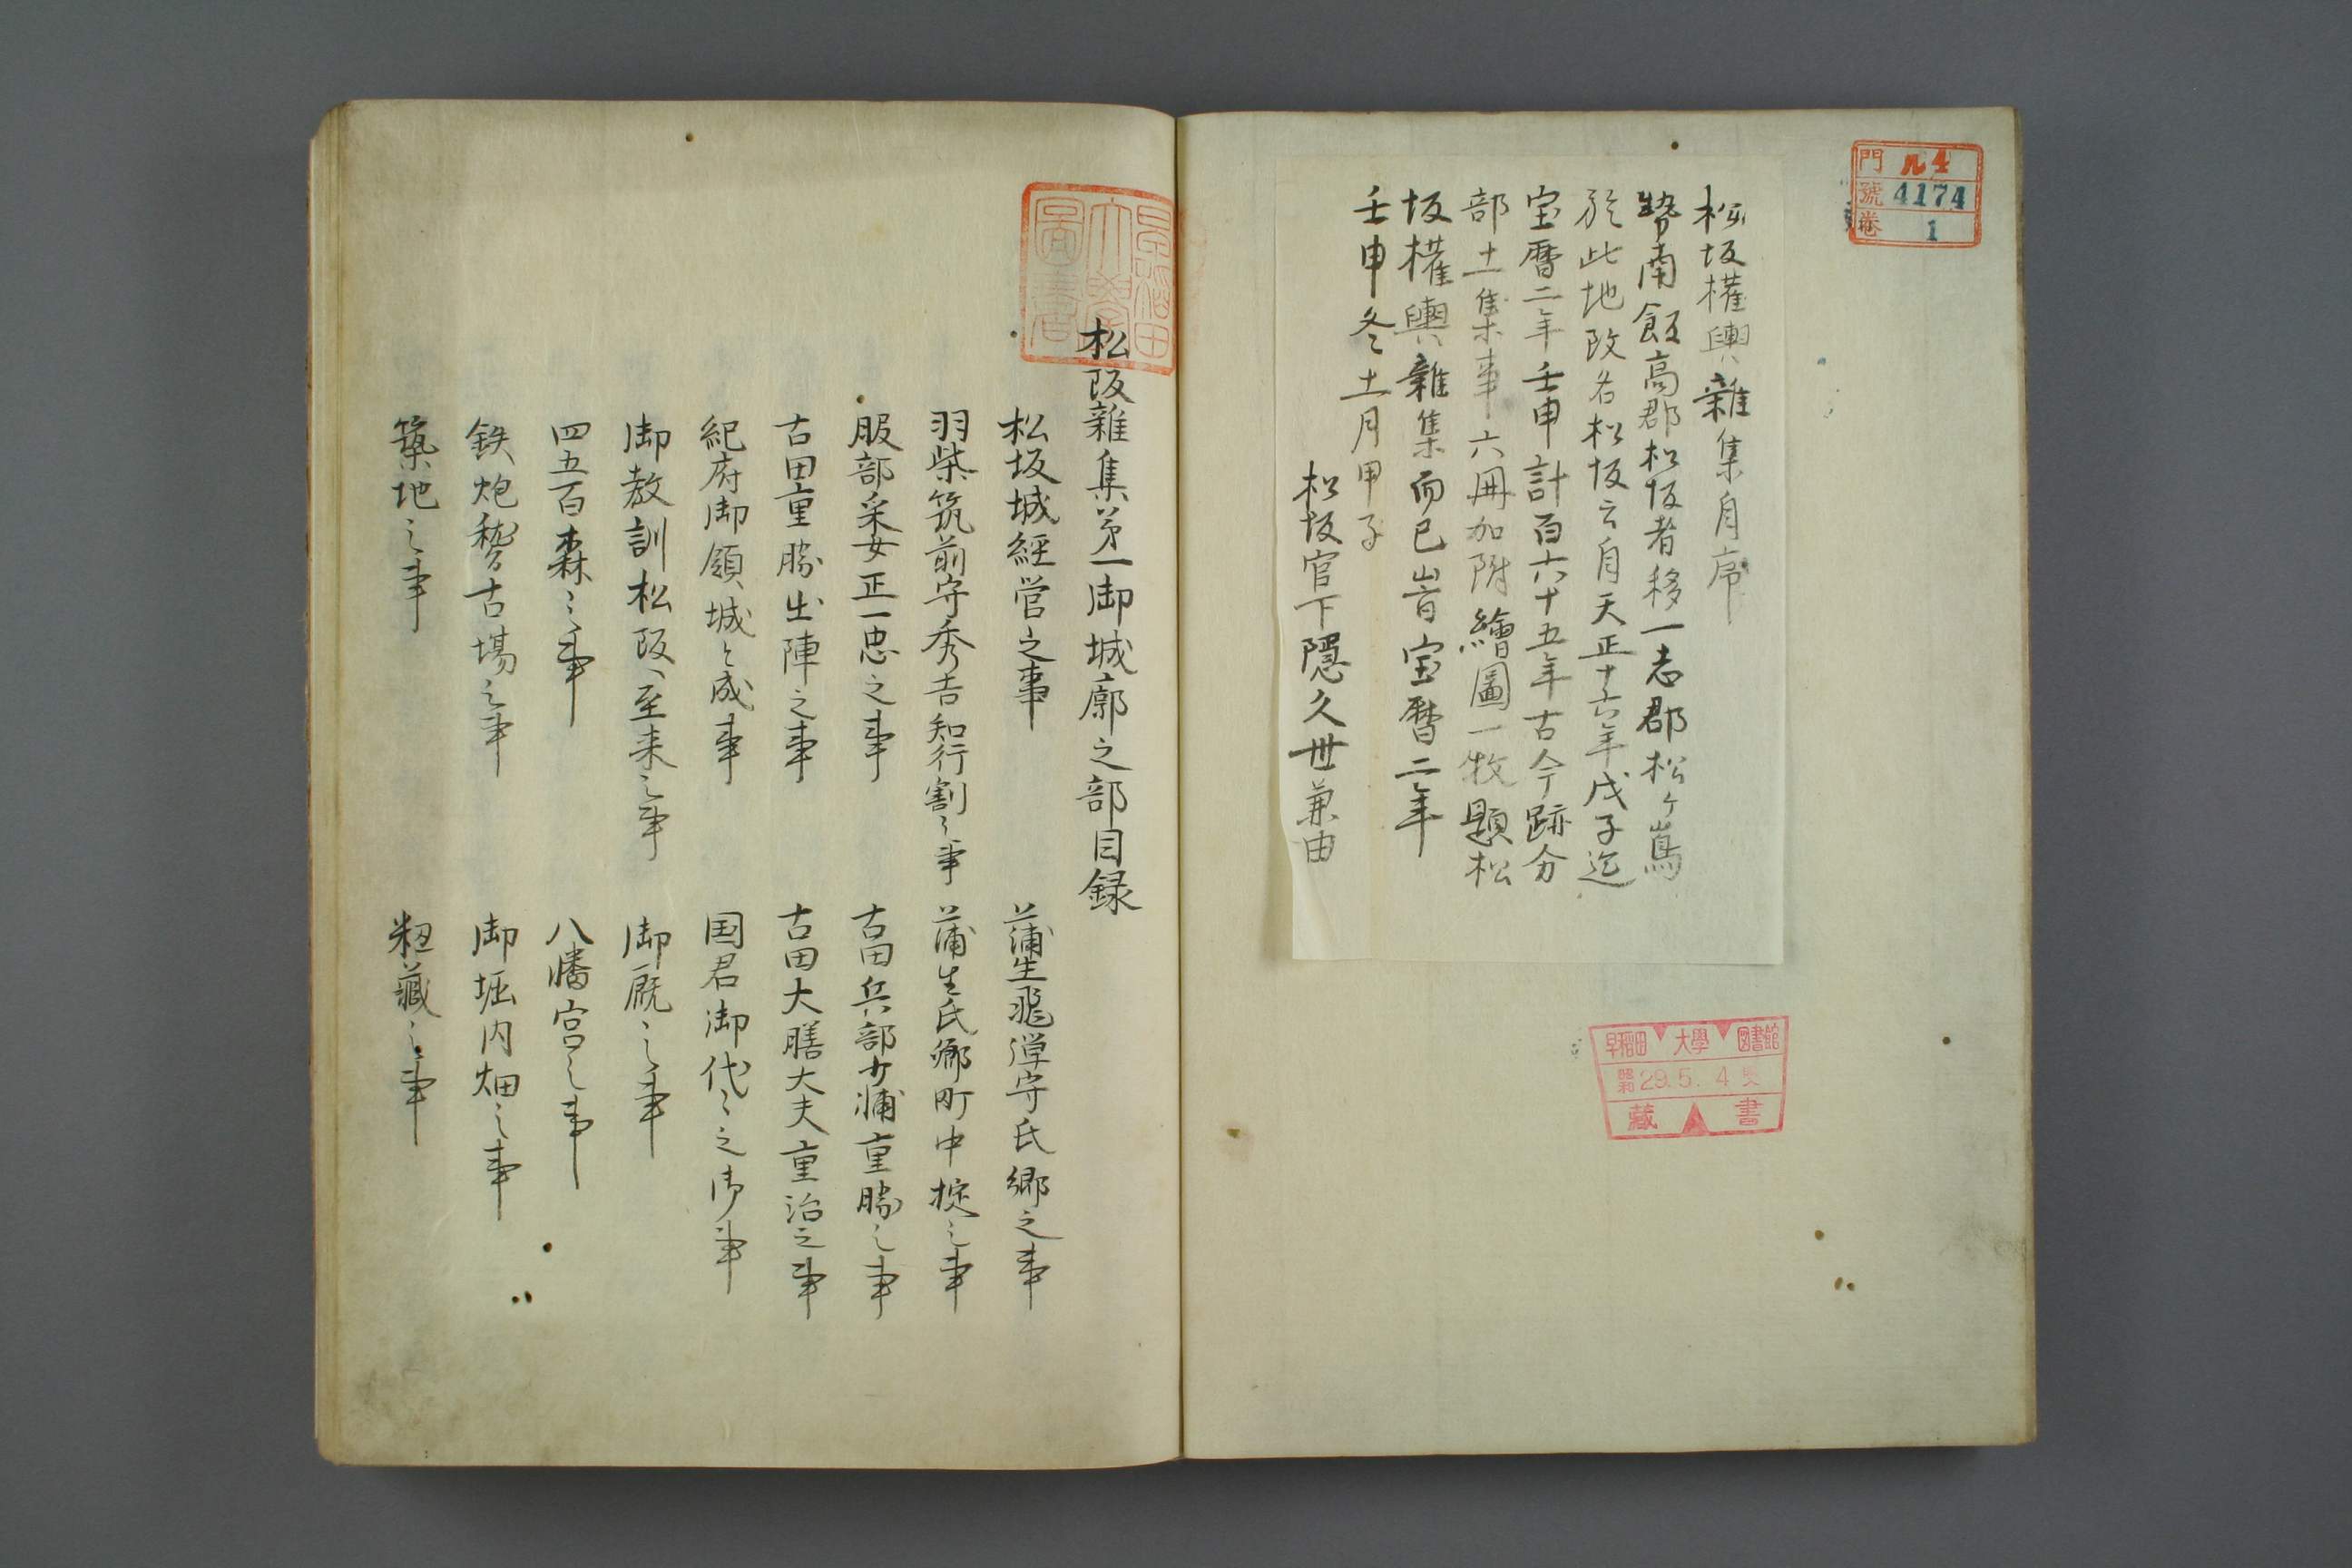 門 ル4
號 4174
巻 1
松坂權輿雜集自序
勢南飯高郡松坂者移一志郡松ヶ嶌
於此地改名松坂云自天正十六年戊子迄
宝暦二年壬申計百六十五年古今跡分
部土集事六冊加附繪圖一牧題松
坂權輿雜集而已旹宝暦二年
壬申冬十一月甲子
松坂官下隠久世兼由
早稲田大學圖書館
昭和29.5.4
藏書
早稲田大學圖書
松阪雜集第一御城廓之部目録
松坂城経営之事
蒲生飛弾守氏郷之事
羽柴筑前守秀吉知行割之事
蒲生氏郷町中掟之事
服部采女正一忠之事
古田兵部少浦重勝之事
古田重勝出陣之事
古田大膳大夫重治之事
紀府御領城と成事
国君御代々之御事
御教訓松阪へ至来之事
御厩之事
四五百森之事
八幡宮之事
鉄炮稽古場之事
御堀内畑之事
築地之事
籾藏之事